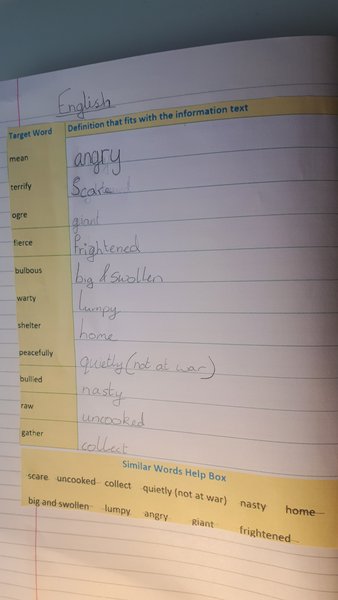 English
Target Word Definition that fits with the information text
mean angry
terrify Scare
ogre giant
fierce frightened
bulbous big & swollen
warty lumpy
shelter home
peacefully quietly (not at war)
bullied nasty
raw uncooked
gather collect
Similar Words Help Box
scare uncooked collect quietly (not at war) nasty home
big and swollen lumpy angry giant frightened